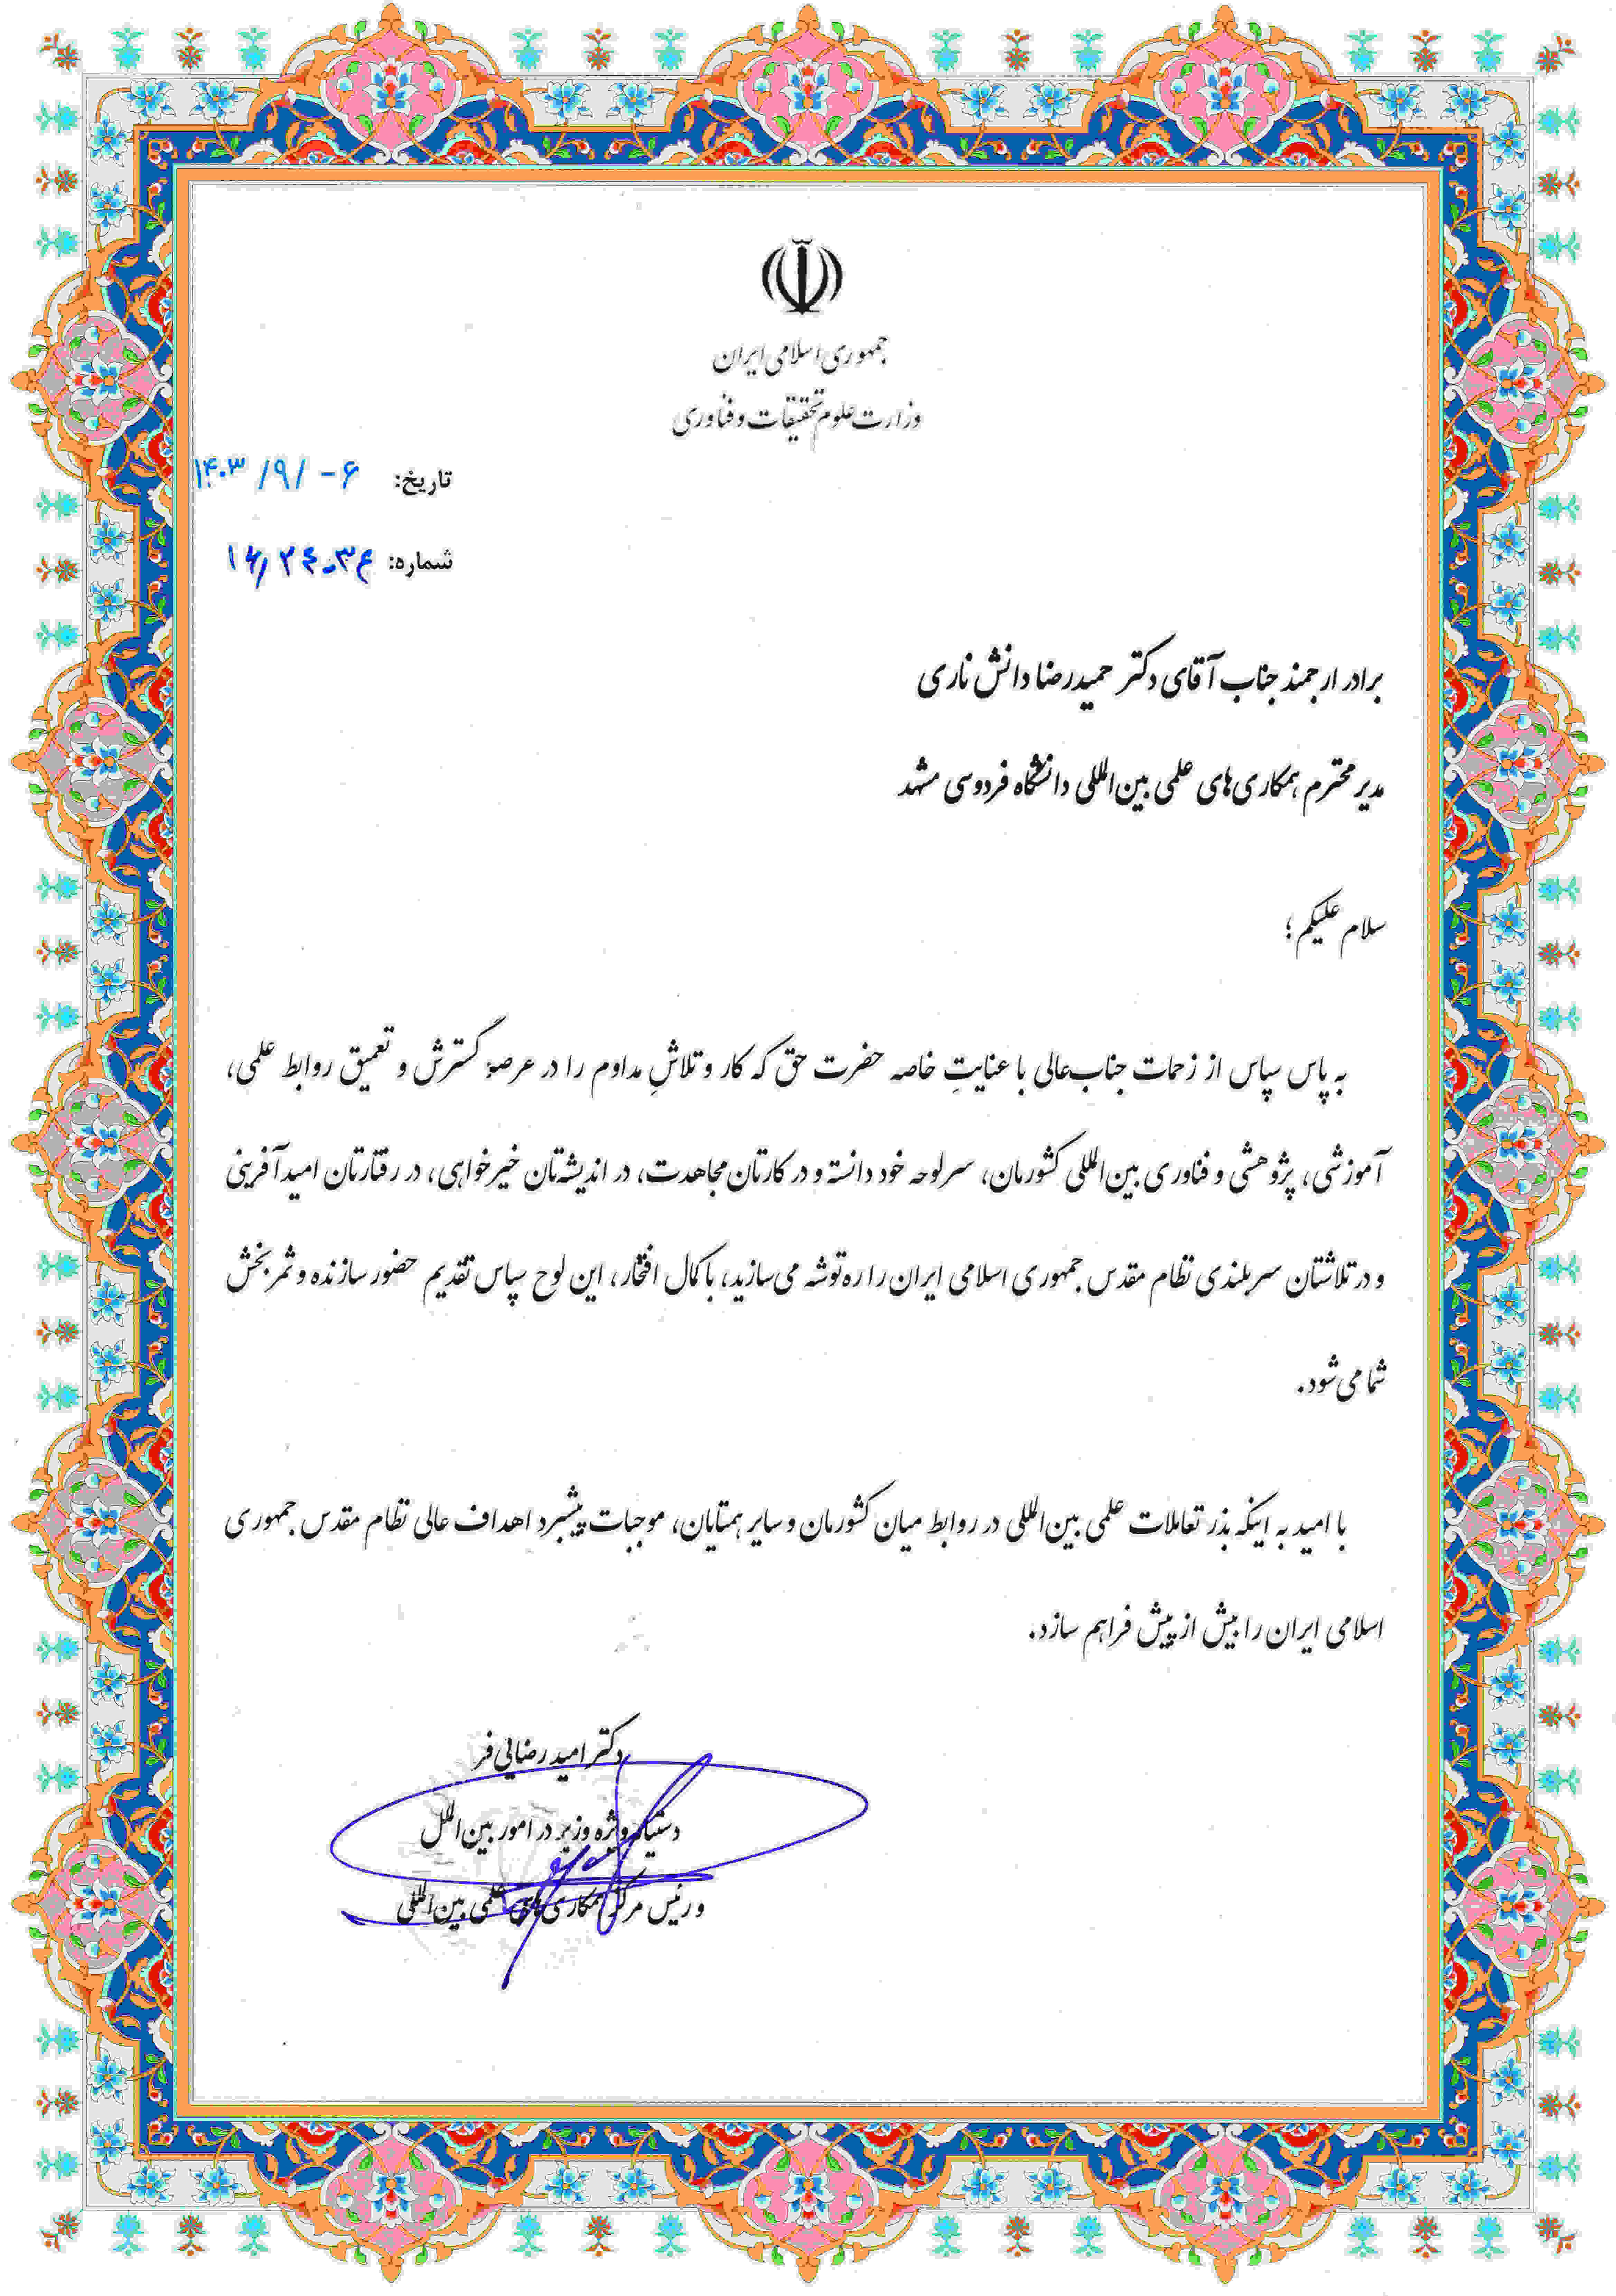 جمهوری اسلامی ایران
وزارت علوم تحقیقات و فناوری
تاریخ: ۱۴۰۳/۹/-۶
شماره:
برادر ارجمند جناب آقای دکتر حمیدرضا دانش ناری
مدیر محترم همکاری‌های علمی بین‌المللی دانشگاه فردوسی مشهد
سلام علیکم؛
به پاس سپاس از زحمات جناب‌عالی با عنایتِ خاصه حضرت حق که کار و تلاشِ مداوم را در عرصهٔ گسترش و تعمیق روابط علمی،
آموزشی، پژوهشی و فناوری بین‌المللی کشورمان، سرلوحه خود دانسته و در کارتان مجاهدت، در اندیشه‌تان خیرخواهی، در رفتارتان امیدآفرینی
و در تلاشتان سربلندی نظام مقدس جمهوری اسلامی ایران را ره‌توشه می‌سازید، با کمال افتخار، این لوح سپاس تقدیم حضور سازنده و ثمربخش
شما می‌شود.
با امید به اینکه بذر تعاملات علمی بین‌المللی در روابط میان کشورمان و سایر همتایان، موجبات پیشبرد اهداف عالی نظام مقدس جمهوری
اسلامی ایران را بیش از پیش فراهم سازد.
دکتر امید رضایی‌فر
دستیار ویژه وزیر در امور بین‌الملل
و رئیس مرکز همکاری‌های علمی بین‌المللی